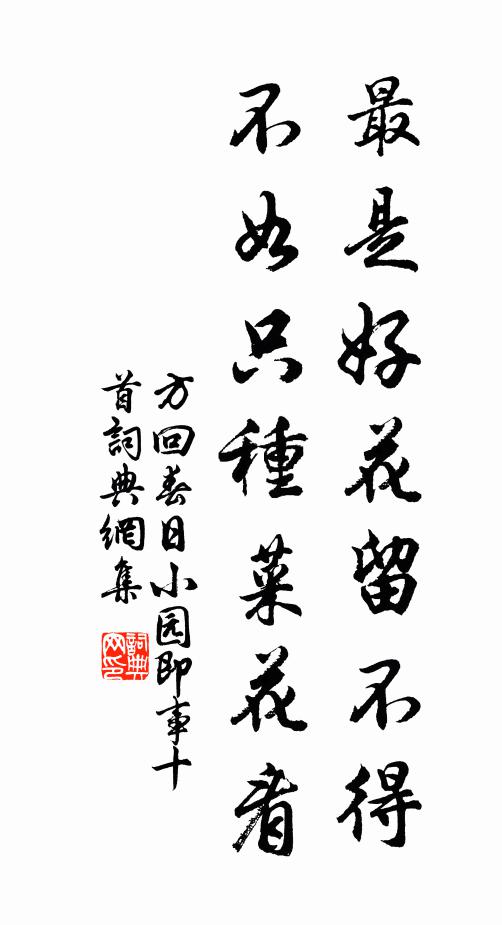 最是好花留不得
不如只種菜花看
方回春日小园即事十
首詞典網集
詞典
网印